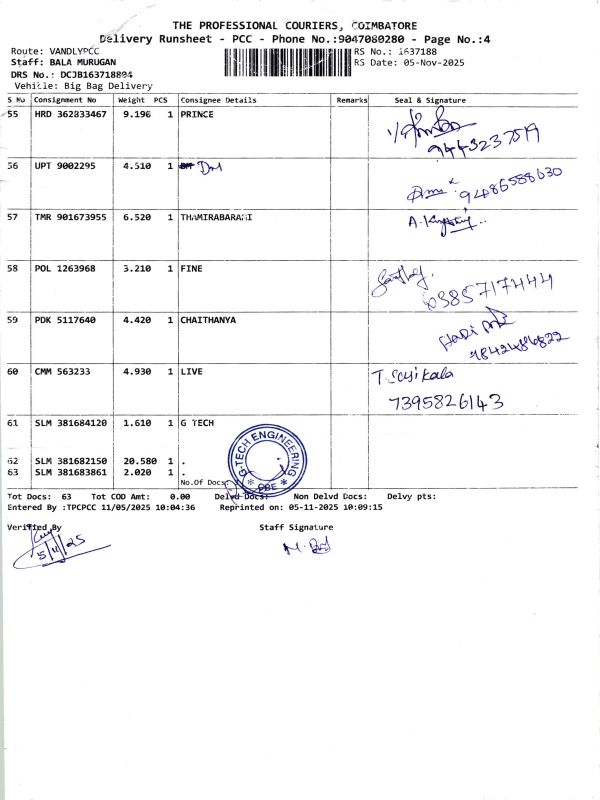 THE PROFESSIONAL COURIERS, COIMBATORE
Delivery Runsheet - PCC - Phone No.:9047080280 - Page No.:4
Route: VANDLYPCC RS No.: 1637188
Staff: BALA MURUGAN RS Date: 05-Nov-2025
DRS No.: DCJB163718804
Vehicle: Big Bag Delivery
S No Consignment No Weight PCS Consignee Details Remarks Seal & Signature
55 HRD 362833467 9.196 1 PRINCE
9443237519
56 UPT 9002295 4.510 1
9486588630
57 TMR 901673955 6.520 1 THAMIRABARANI
58 POL 1263968 3.210 1 FINE
59 PDK 5117640 4.420 1 CHAITHANYA
60 CMM 563233 4.930 1 LIVE
7395826143
61 SLM 381684120 1.610 1 G TECH
62 SLM 381682150 20.580 1 .
63 SLM 381683861 2.020 1 .
G-TECH ENGINEERING
CBE
No.Of Docs:
Tot Docs: 63 Tot COD Amt: 0.00 Delvd Docs: Non Delvd Docs: Delvy pts:
Entered By :TPCPCC 11/05/2025 10:04:36 Reprinted on: 05-11-2025 10:09:15
Verified By Staff Signature
5/11/25